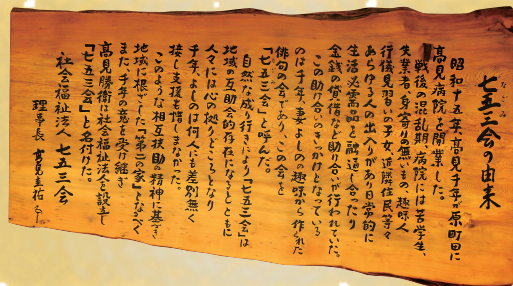 七五三会の由来
なごみ
昭和十五年、髙見千年が原町田に
髙見病院を開業した。
戦後の混乱期、病院には苦学生、
失業者、身寄りの無いもの、趣味人
行儀見習いの子女、近隣住民等々
あらゆる人の出入りがあり日常的に
生活必需品を融通し合ったり
金銭の貸借など助け合いが行われていた。
この助け合いのきっかけとなっている
のは千年、妻よしのの趣味から作られた
俳句の会であり、この会を
「七五三会」と呼んだ。
自然な成り行きにより「七五三会」は
地域の互助会的存在になるとともに
人々には心の拠りどころとなり
千年、よしのは何人にも差別無く
接し支援を惜しまなかった。
このような相互扶助の精神に基づき
地域に根ざした「第二の家」となるべく
また、千年の意を受け継ぎ
髙見勝衛は社会福祉法人を設立し
「七五三会」と名付けた。
社会福祉法人 七五三会
理事長 髙見圭祐